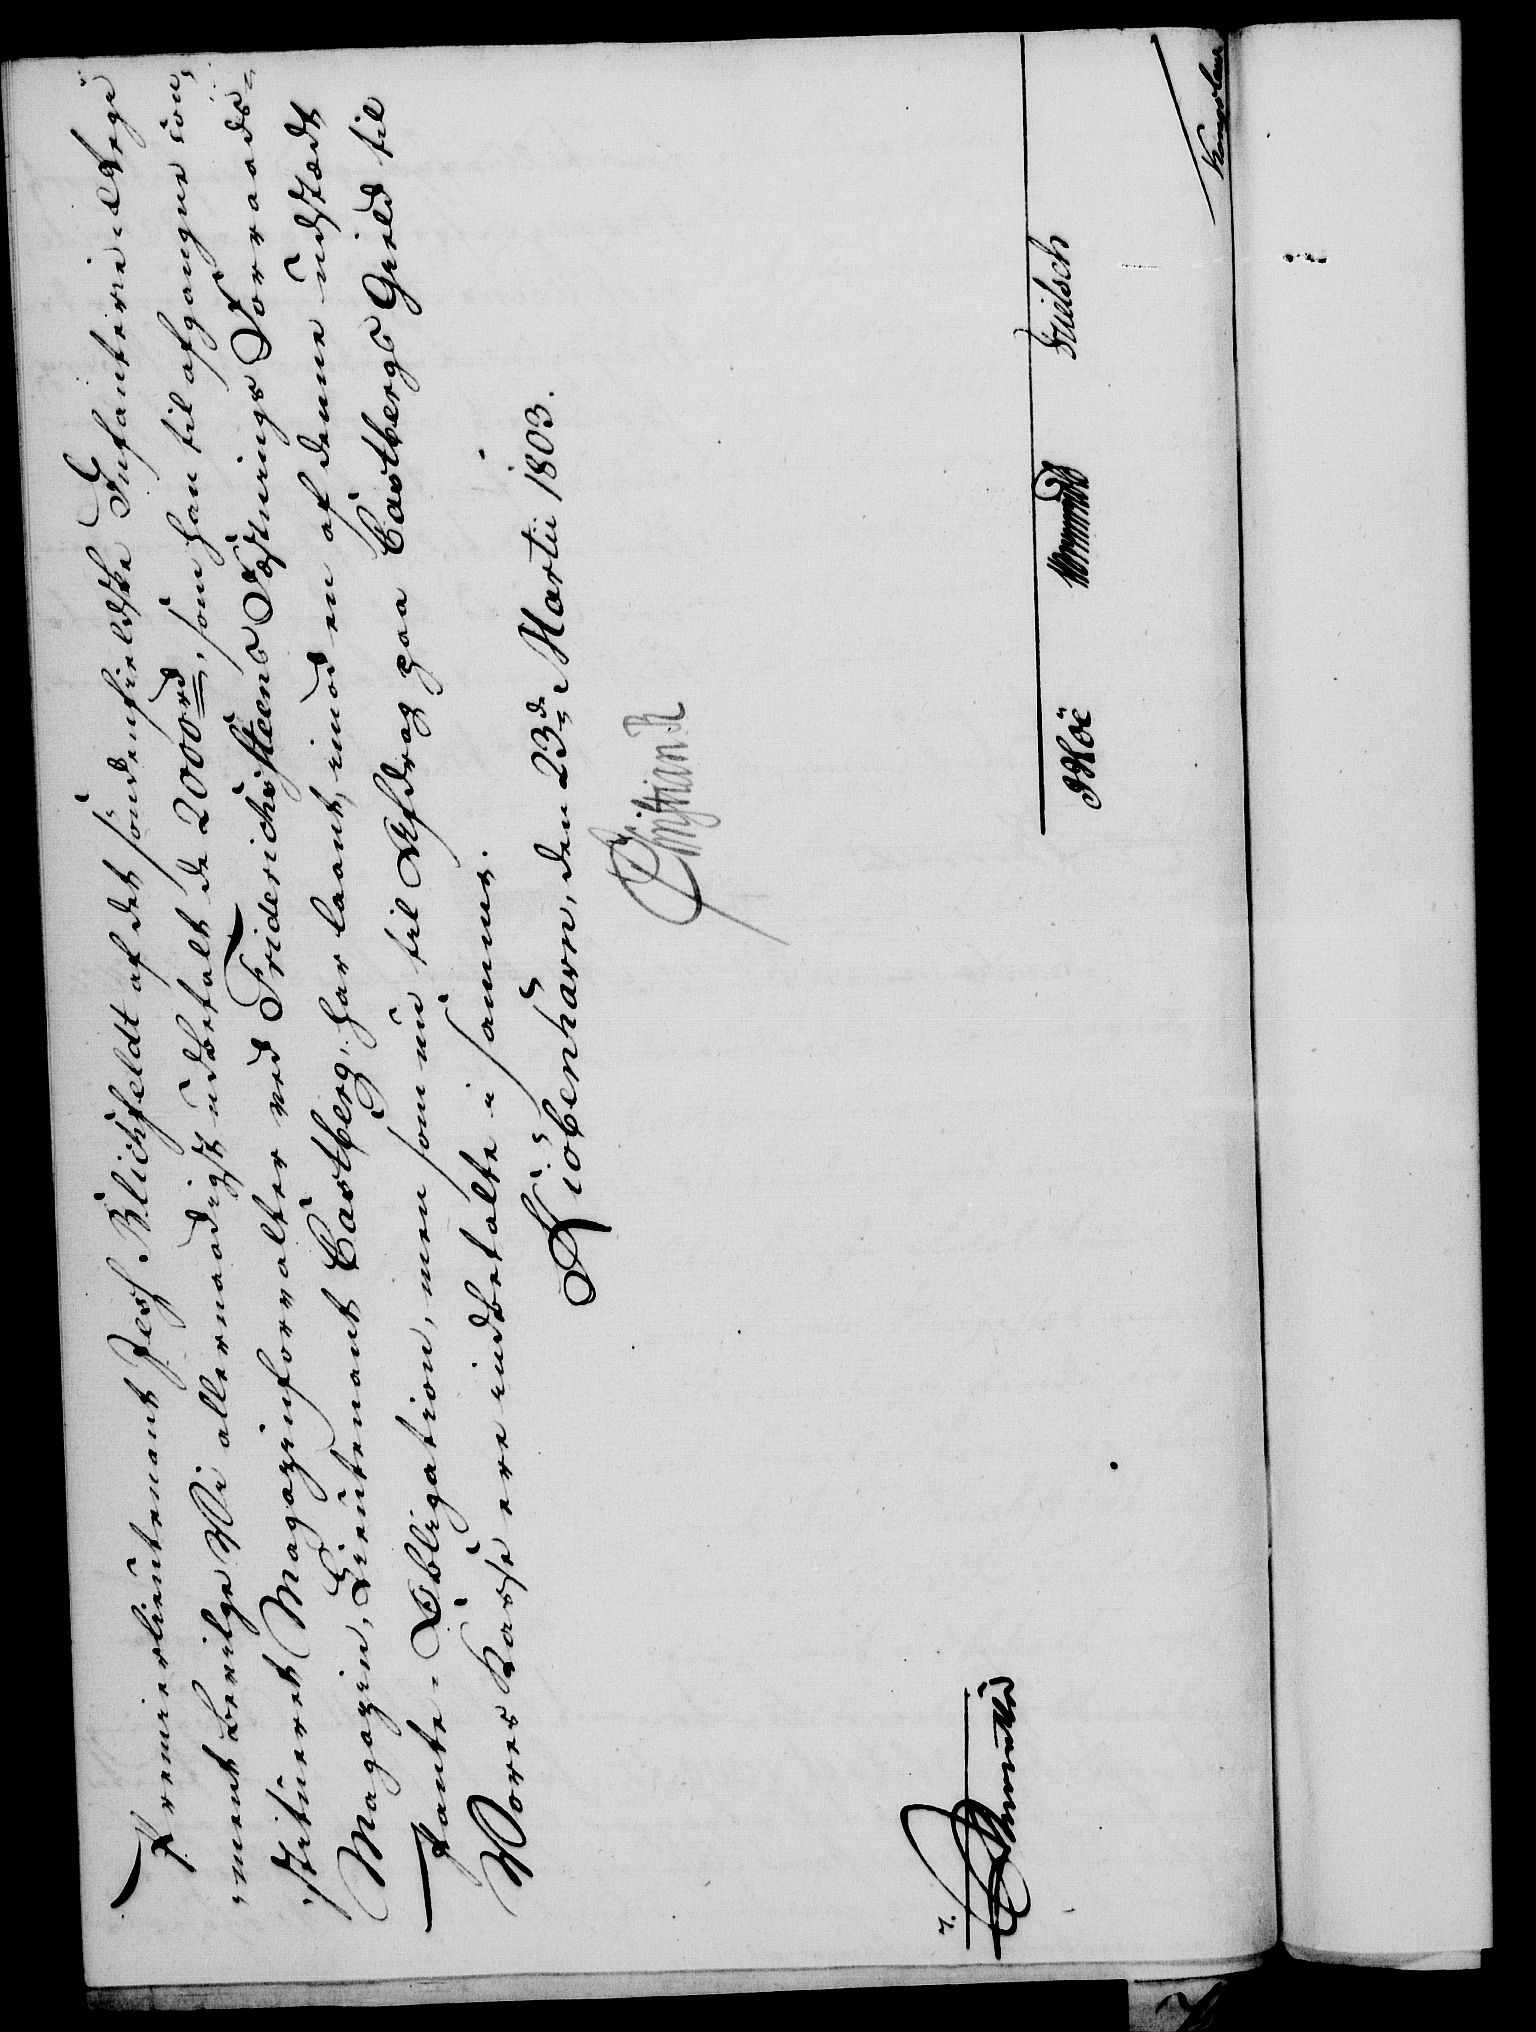 Premierlieutenant Jess Blichfeldt af det söndenfieldske Infanterie-Rege-
ment bevilge Vi allernaadigst udbetalt de 2000 rd, som han til afgangne con-
stitueret Magazinforvalter ved Friderichsteens Fæstnings Forraads-
Magazin, Lieutenant Castberg, har laant, imod en af denne udstædt
Pante-Obligation, men som nu til Afdrag paa Castbergs Gield til
Vores Kasse ere indbetalte i samme.
Kiöbenhavn, den 23de Martii 1803.
Christian R